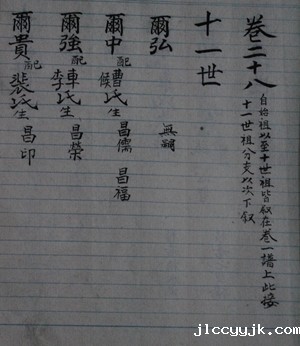 卷二十八
自始祖以至十世祖皆叙在卷一譜上此接
十一世祖分支以次下叙
十一世
爾弘 無嗣
爾中 配曹氏 侯氏 生昌儒 昌福
爾強 配車氏 李氏 生昌榮
爾貴 配裴氏 生昌印
jlccyyjk.com